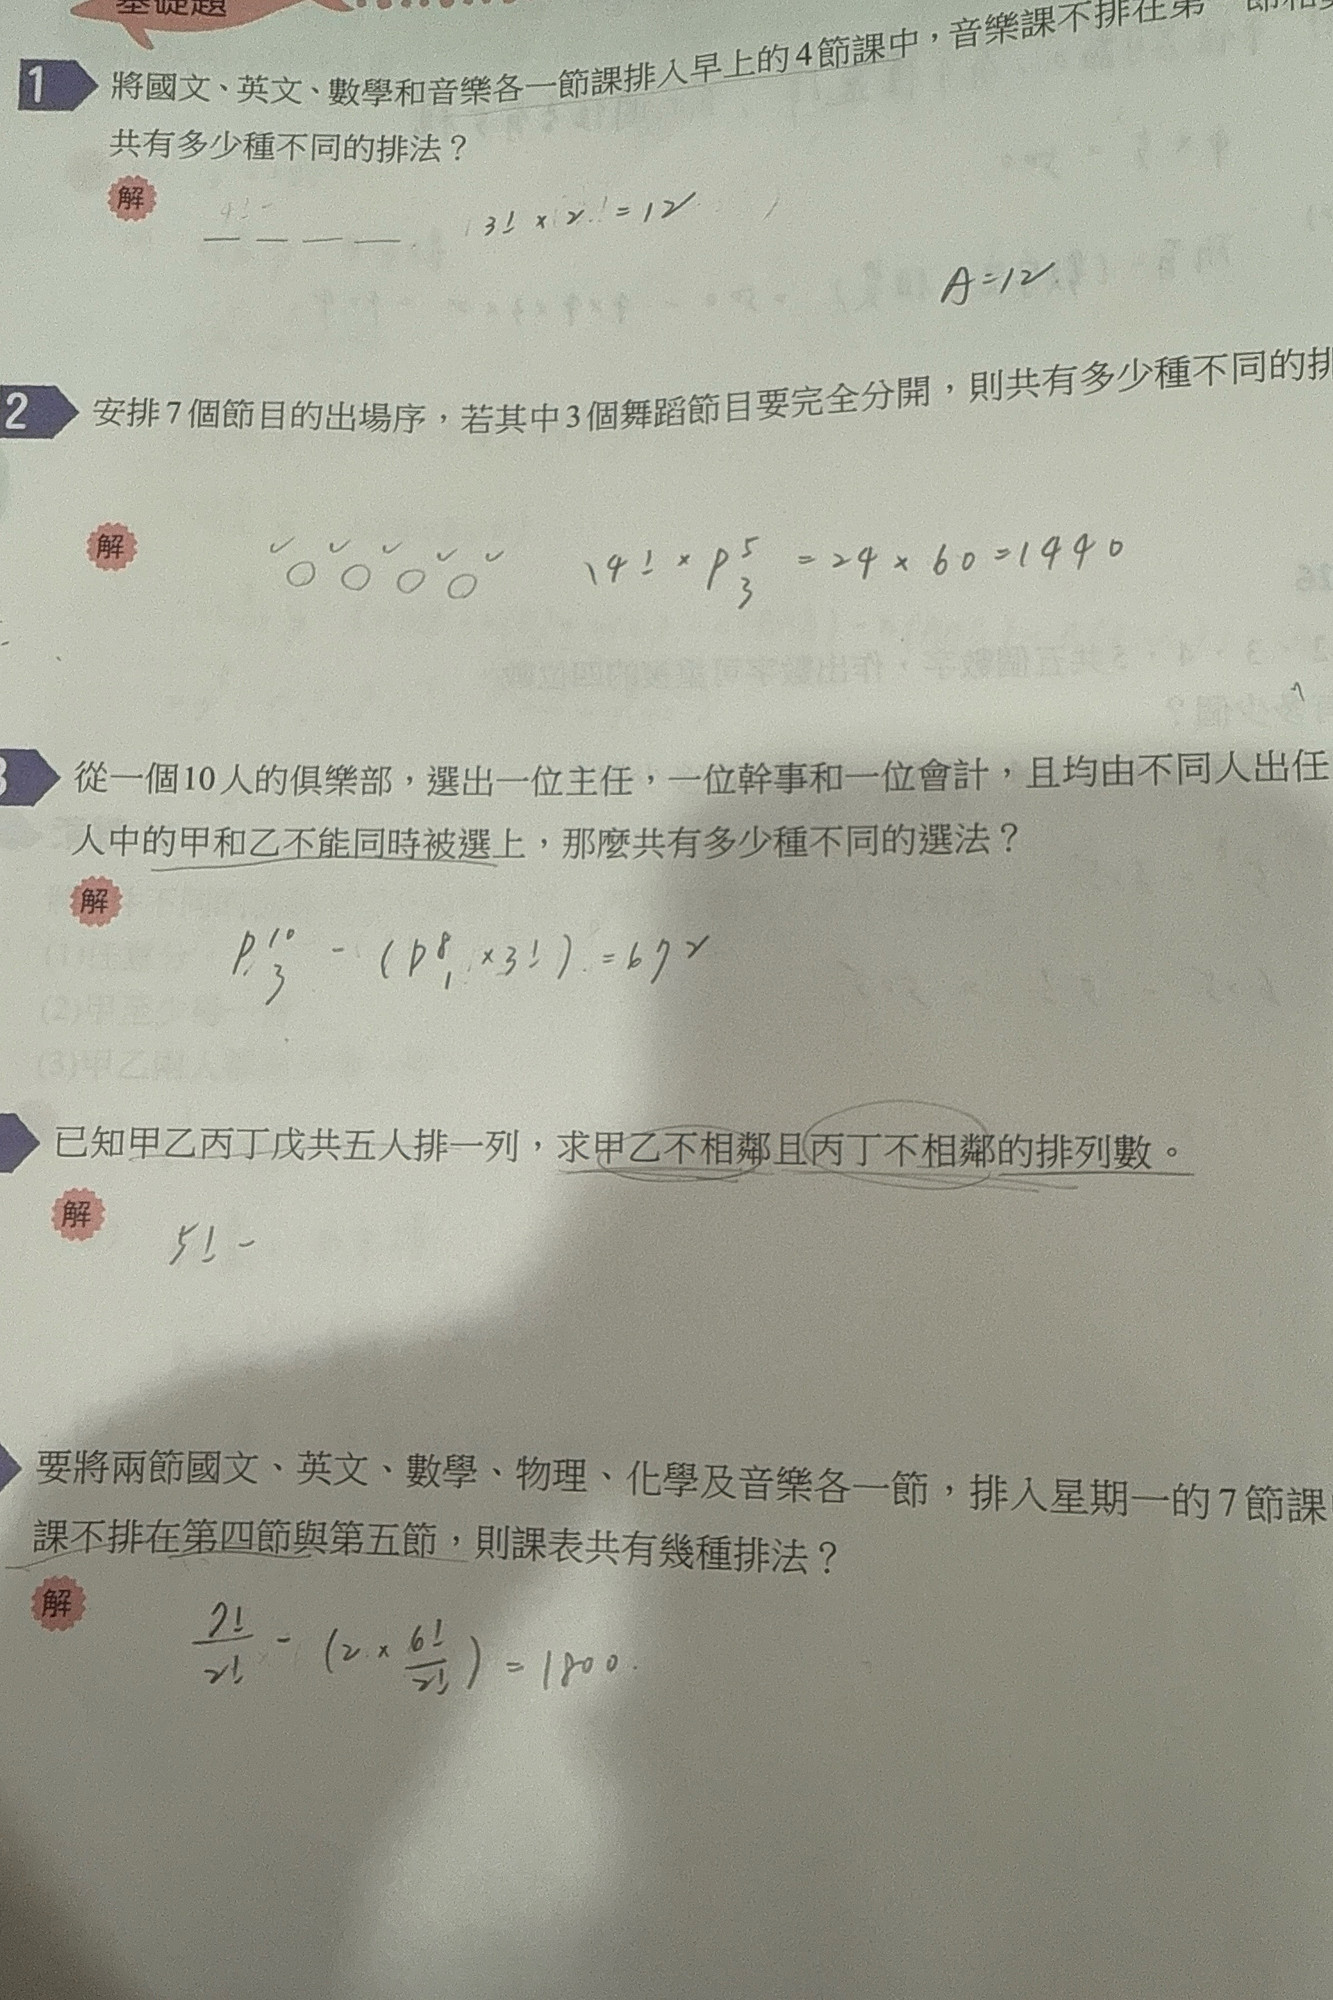 基礎題
1 將國文、英文、數學和音樂各一節課排入早上的4節課中，音樂課不排在第
共有多少種不同的排法？
解 4! -
3! × 2! = 12
A = 12
2 安排7個節目的出場序，若其中3個舞蹈節目要完全分開，則共有多少種不同的排
解 4! × P⁵₃ = 24 × 60 = 1440
3 從一個10人的俱樂部，選出一位主任，一位幹事和一位會計，且均由不同人出任
人中的甲和乙不能同時被選上，那麼共有多少種不同的選法？
解 P¹⁰₃ - (P⁸₁ × 3!) = 672
已知甲乙丙丁戊共五人排一列，求甲乙不相鄰且丙丁不相鄰的排列數。
解 5! -
要將兩節國文、英文、數學、物理、化學及音樂各一節，排入星期一的7節課
課不排在第四節與第五節，則課表共有幾種排法？
解 7!/2! - (2 × 6!/2!) = 1800